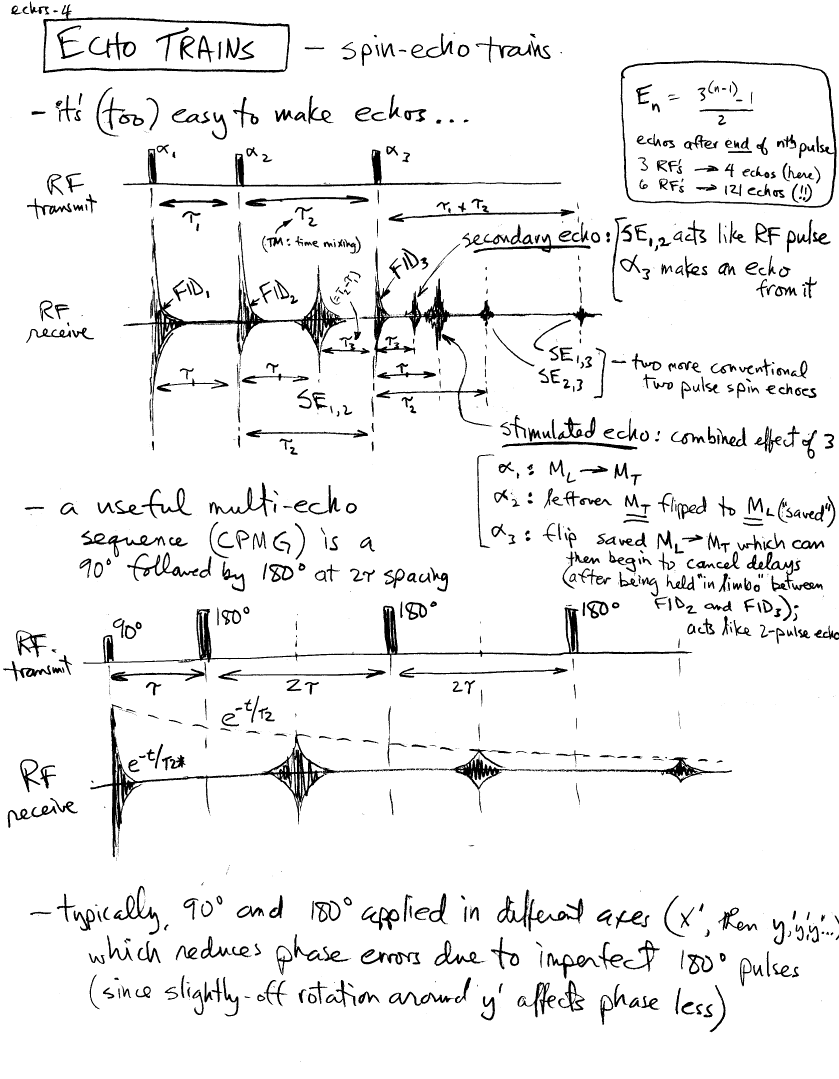 echos-4
ECHO TRAINS – spin-echo trains.
- it's (too) easy to make echos...
E_n = (3^(n-1) - 1) / 2
echos after end of nth pulse
3 RF's → 4 echos (here)
6 RF's → 121 echos (!!)
RF transmit
α₁ α₂ α₃
τ₁ τ₂ τ₁ + τ₂
(TM: time mixing)
secondary echo: SE₁,₂ acts like RF pulse
α₃ makes an echo
from it
RF receive
FID₁ FID₂ FID₃
(=τ₂-τ₁)
τ₃ τ₃
τ₁ τ₁ τ₁
SE₁,₂ τ₂
τ₂
SE₁,₃
SE₂,₃
– two more conventional
two pulse spin echoes
stimulated echo: combined effect of 3
α₁: M_L → M_T
α₂: leftover M_T flipped to M_L ("saved")
α₃: flip saved M_L → M_T which can
then begin to cancel delays
(after being held "in limbo" between
FID₂ and FID₃);
acts like 2-pulse echo
- a useful multi-echo
sequence (CPMG) is a
90° followed by 180° at 2τ spacing
RF transmit
90° 180° 180° 180°
τ 2τ 2τ
e^-t/T2
e^-t/T2*
RF receive
- typically, 90° and 180° applied in different axes (x', then y',y',y'...)
which reduces phase errors due to imperfect 180° pulses
(since slightly-off rotation around y' affects phase less)